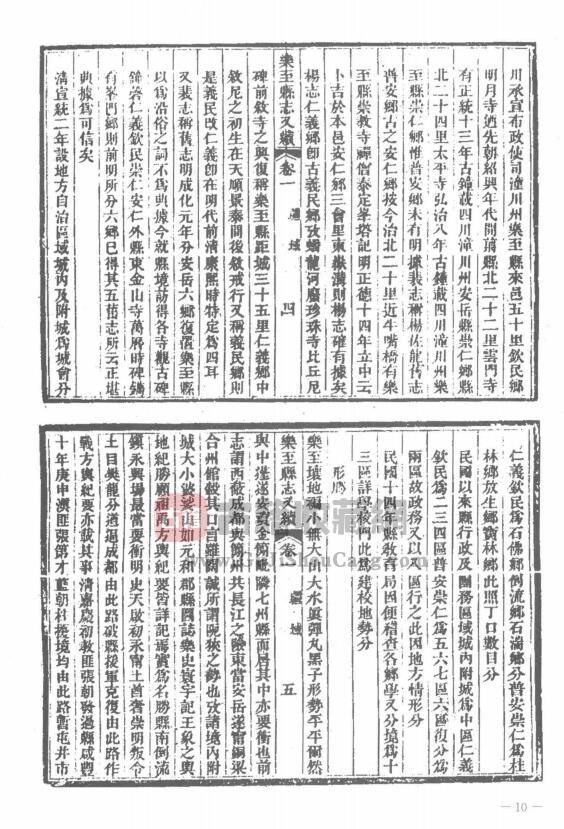 川承宣布政使司潼川州樂至縣來邑五十里欽民鄉
明月寺迺先朝紹興年代間舊縣北二十二里雲門寺
有正統十三年古鐘載四川潼川州安岳縣崇仁鄉縣
北二十四里太平寺弘治八年古鐘載四川潼川州樂
至縣崇仁鄉惟普安鄉未有明據裴志稱楊佐龍舊志
普安鄉古之安仁鄉按今治北二十里近牛嘴橋有樂
至縣崇教寺禪僧泰定峯塔記明正德十四年立中云
卜吉於本邑安仁鄉三會里東嶽溝則楊志確有據矣
楊志仁義鄉卽古義民鄉攷蟠龍河廢珍珠寺比丘尼
樂至縣志又續 卷一 疆域 四
碑前敘寺之興復稱樂至縣距城三十五里仁義鄉中
敘尼之初生在天順景泰間後敘戒行又稱義民鄉則
是義民改仁義卽在明代前清康熙時特定爲四耳
又裴志稱舊志明成化元年分安岳六鄉復置樂至縣
以爲沿俗之詞不爲典據今就縣境訪得各寺觀古碑
鐘磬仁義欽民崇仁安仁外縣東金山寺萬曆時碑鐫
有峯門鄉則前明所分六鄉已得其五舊志所云正堪
典據爲可信矣
清宣統二年設地方自治區域城內及附城爲城會分
仁義欽民爲石佛鄉倒流鄉石湍鄉分普安崇仁爲桂
林鄉放生鄉寶林鄉此照丁口數目分
民國以來縣行政及團務區域城內附城爲中區仁義
欽民爲二三四區普安崇仁爲五六七區六區復分爲
兩區故政務又以八區行之此因地方情形分
民國十四年縣教育局因便稽查各鄉學又分境爲十
三區詳學校四此爲建校地勢分
形勝
樂至壤地褊小無大山大水眞彈丸黑子形勢平平爾然
樂至縣志又續 卷一 疆域 五
與中遂遂安資金簡毗隣七州縣而居其中亦要衝也前
志謂西蔽成都與簡州共長江之險東當安岳遂甯銅梁
合州館轂其口言雖闊誠所謂阨狹之勢也攷諸境內附
城大小婆娑山如元和郡縣圖誌樂史寰宇記王象之輿
地紀勝顧祖禹方輿紀要皆詳記焉實爲名勝縣南倒流
鎭永興場最當要衝明史天啟初永甯土酋奢崇明叛令
土目樊龍分道逼成都由此路破縣援軍克復由此路作
戰方輿紀要亦載其事清嘉慶初教匪張朝發過縣咸豐
十年庚申滇匪張第才藍朝柱擾境均由此路暫屯幷市
— 10 —